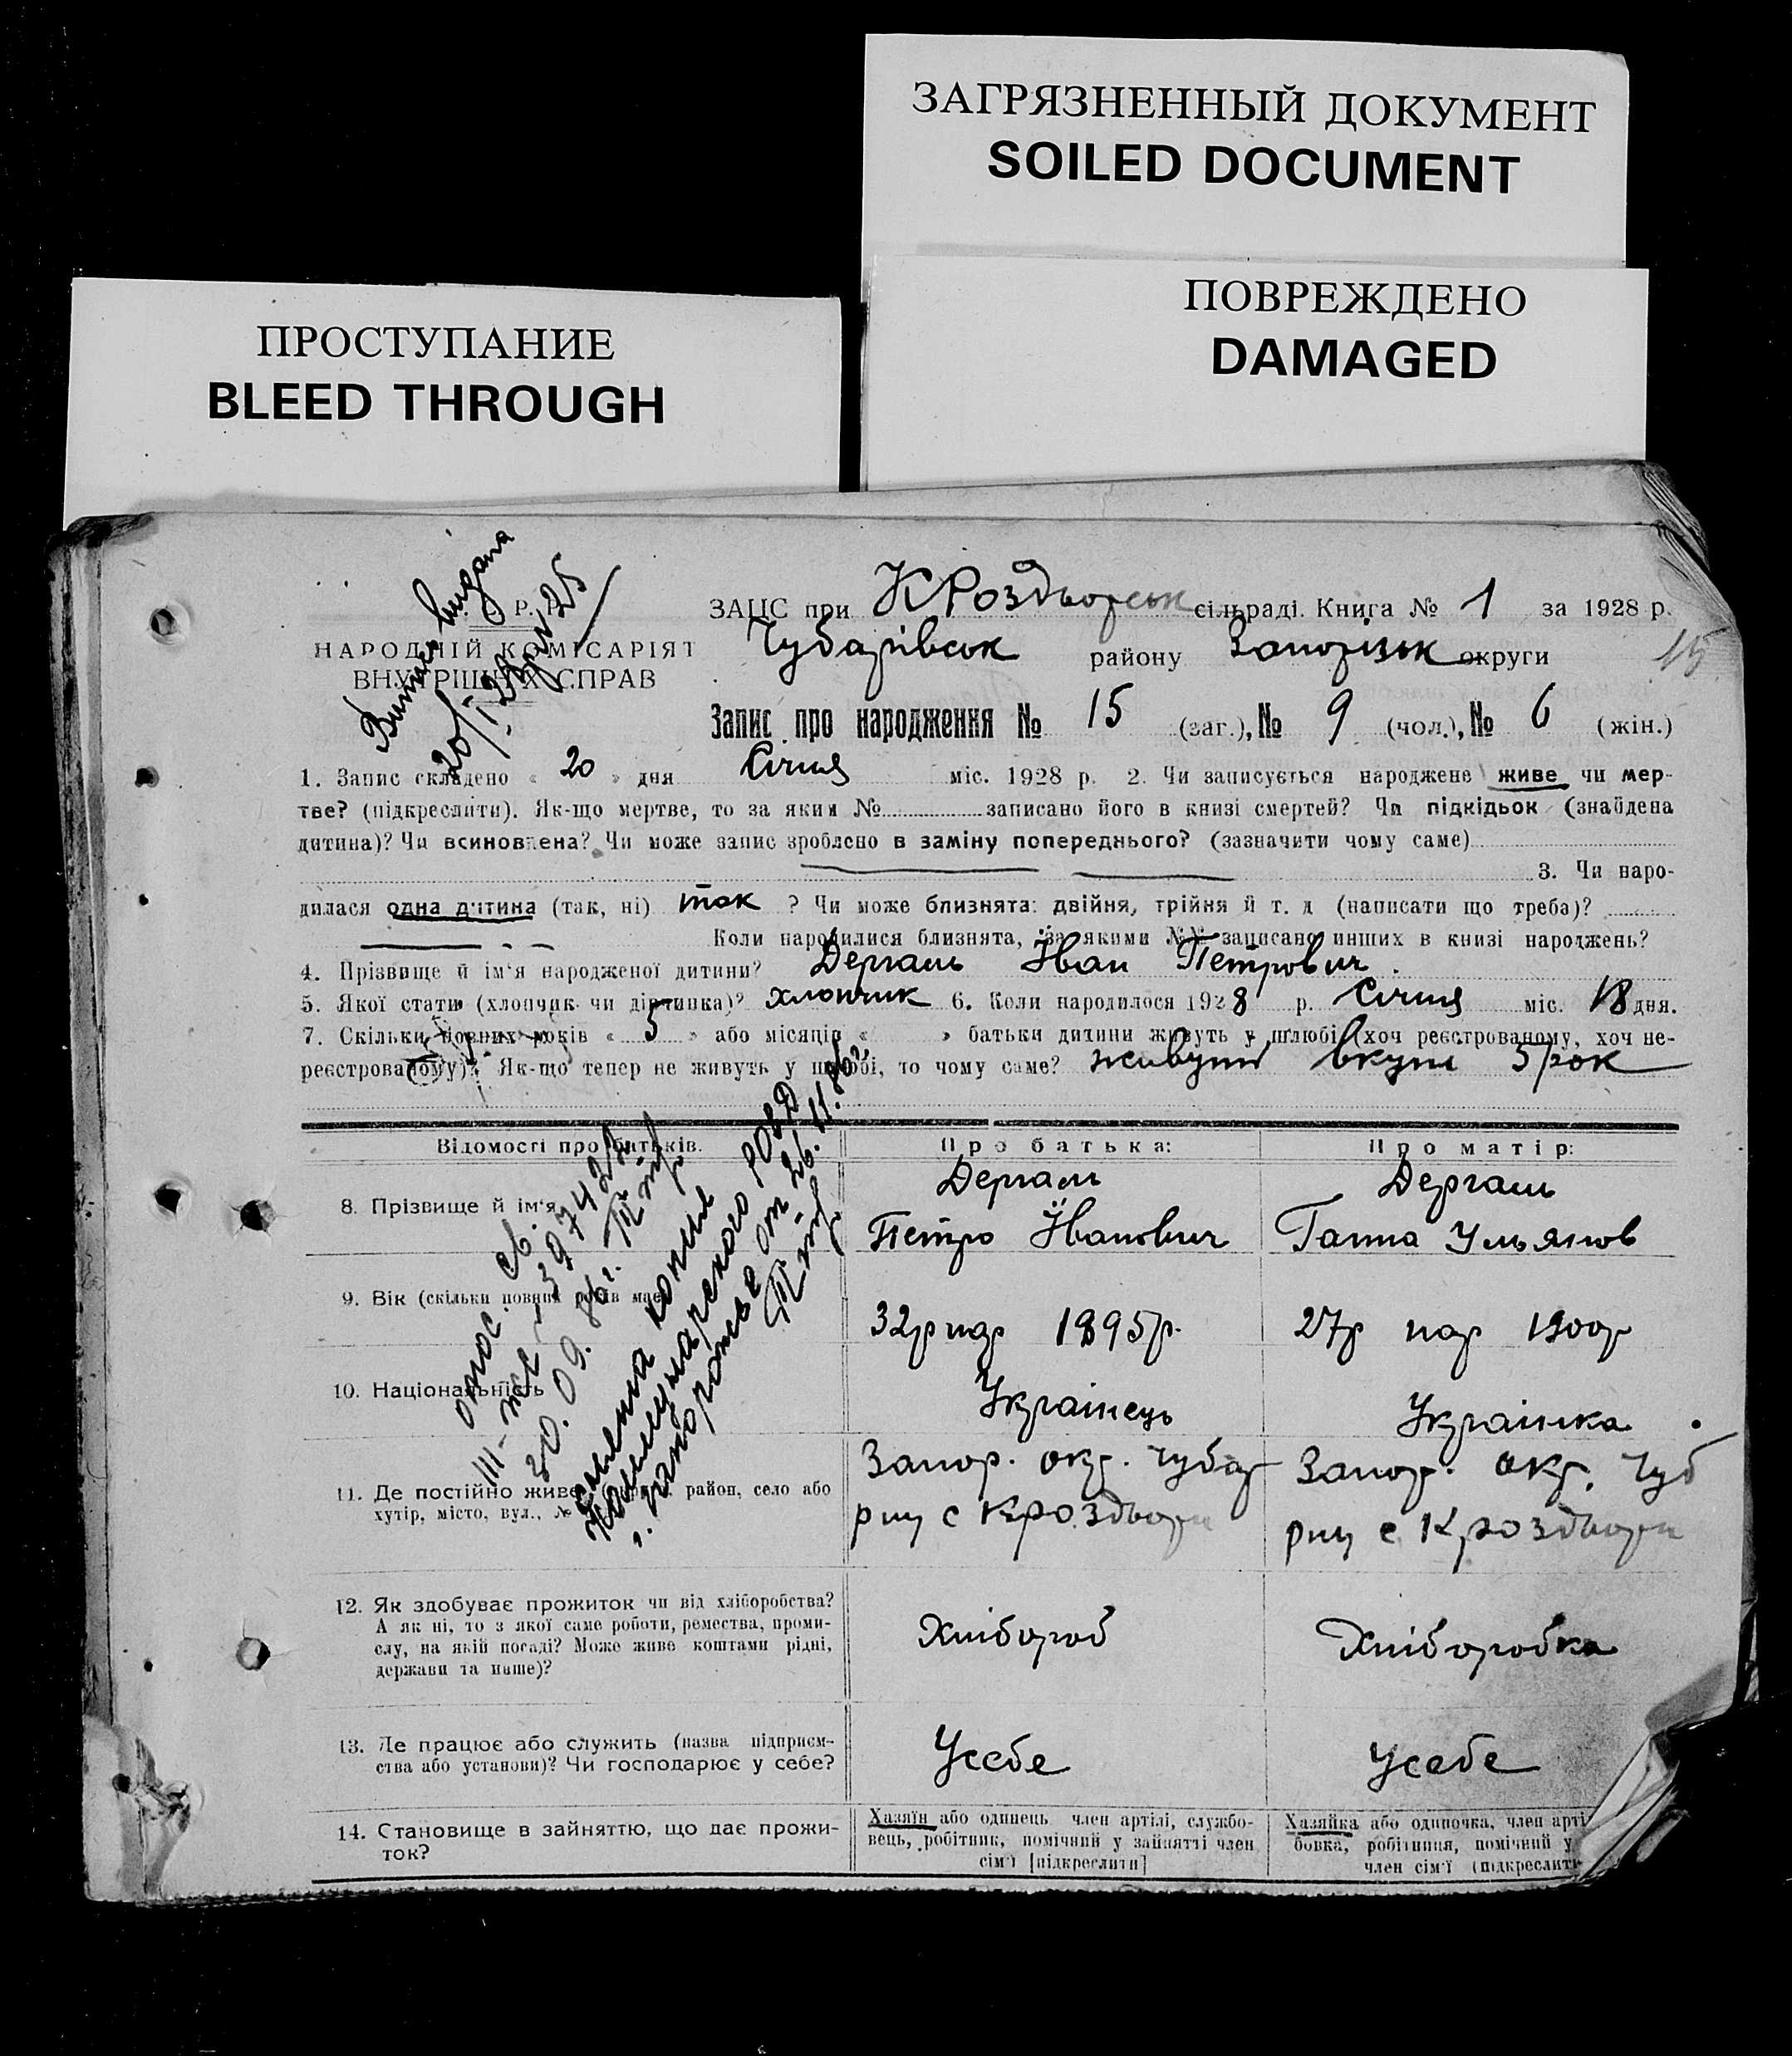 ЗАГРЯЗНЕННЫЙ ДОКУМЕНТ
SOILED DOCUMENT
ПОВРЕЖДЕНО
DAMAGED
ПРОСТУПАНИЕ
BLEED THROUGH
НАРОДНІЙ КОМІСАРІЯТ
ВНУТРІШНІХ СПРАВ
ЗАЦС при КРоздворськ сільраді. Книга № 1 за 1928 р.
Чубарівськ району Запорізьк округи
15
Запис про народження № 15 (заг.), № 9 (чол.), № 6 (жін.)
1. Запис складено « 20 » дня Січня міс. 1928 р. 2. Чи записується народжене живе чи мер-
тве? (підкреслити). Як-що мертве, то за яким № записано його в книзі смертей? Чи підкідьок (знайдена
дитина)? Чи всиновлена? Чи може запис зроблено в заміну попереднього? (зазначити чому саме)
3. Чи наро-
дилася одна дитина (так, ні) так ? Чи може близнята: двійня, трійня й т. д (написати що треба)?
Коли народилися близнята, за якими №№ записано инших в книзі народжень?
4. Прізвище й ім'я народженої дитини? Дергаль Іван Петрович.
5. Якої стати (хлопчик чи дівчинка)? хлопчик 6. Коли народилося 1928 р. Січня міс. 18 дня.
7. Скільки повних років « 5 » або місяців « » батьки дитини живуть у шлюбі (хоч реєстрованому, хоч не-
реєстрованому)? Як-що тепер не живуть у шлюбі, то чому саме? живуть вкупі 5 рок
Відомості про батьків.
Про батька:
Про матір:
8. Прізвище й ім'я
Дергаль
Петро Іванович
Дергаль
Ганна Ульянов
9. Вік (скільки повних років має
32р нар 1895р.
27р нар 1900р
10. Національність
Українець
Українка
11. Де постійно живе район, село або
хутір, місто, вул., №
Запор. окр. Чубар
рну с Кроздвори
Запор. окр. Чуб
рну с Кроздвори
12. Як здобуває прожиток чи від хліборобства?
А як ні, то з якої саме роботи, ремества, проми-
слу, на якій посаді? Може живе коштами рідні,
держави та инше)?
Хлібороб
Хліборобка
13. Де працює або служить (назва підприєм-
ства або установи)? Чи господарює у себе?
Усебе
Усебе
14. Становище в зайняттю, що дає прожи-
ток?
Хазяїн або одинець член артілі, службо-
вець, робітник, помічний у зайнятті член
сім'ї [підкреслити]
Хазяйка або одиночка, член арті
бовка, робітниця, помічний у
член сім'ї (підкреслити